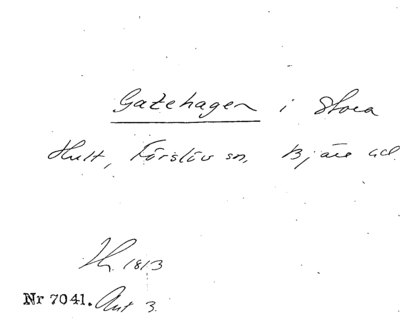 Gatehagen i Stora
Hult, Förslöv sn, Bjäre hd.
1813
Nr 7041. Ant 3.